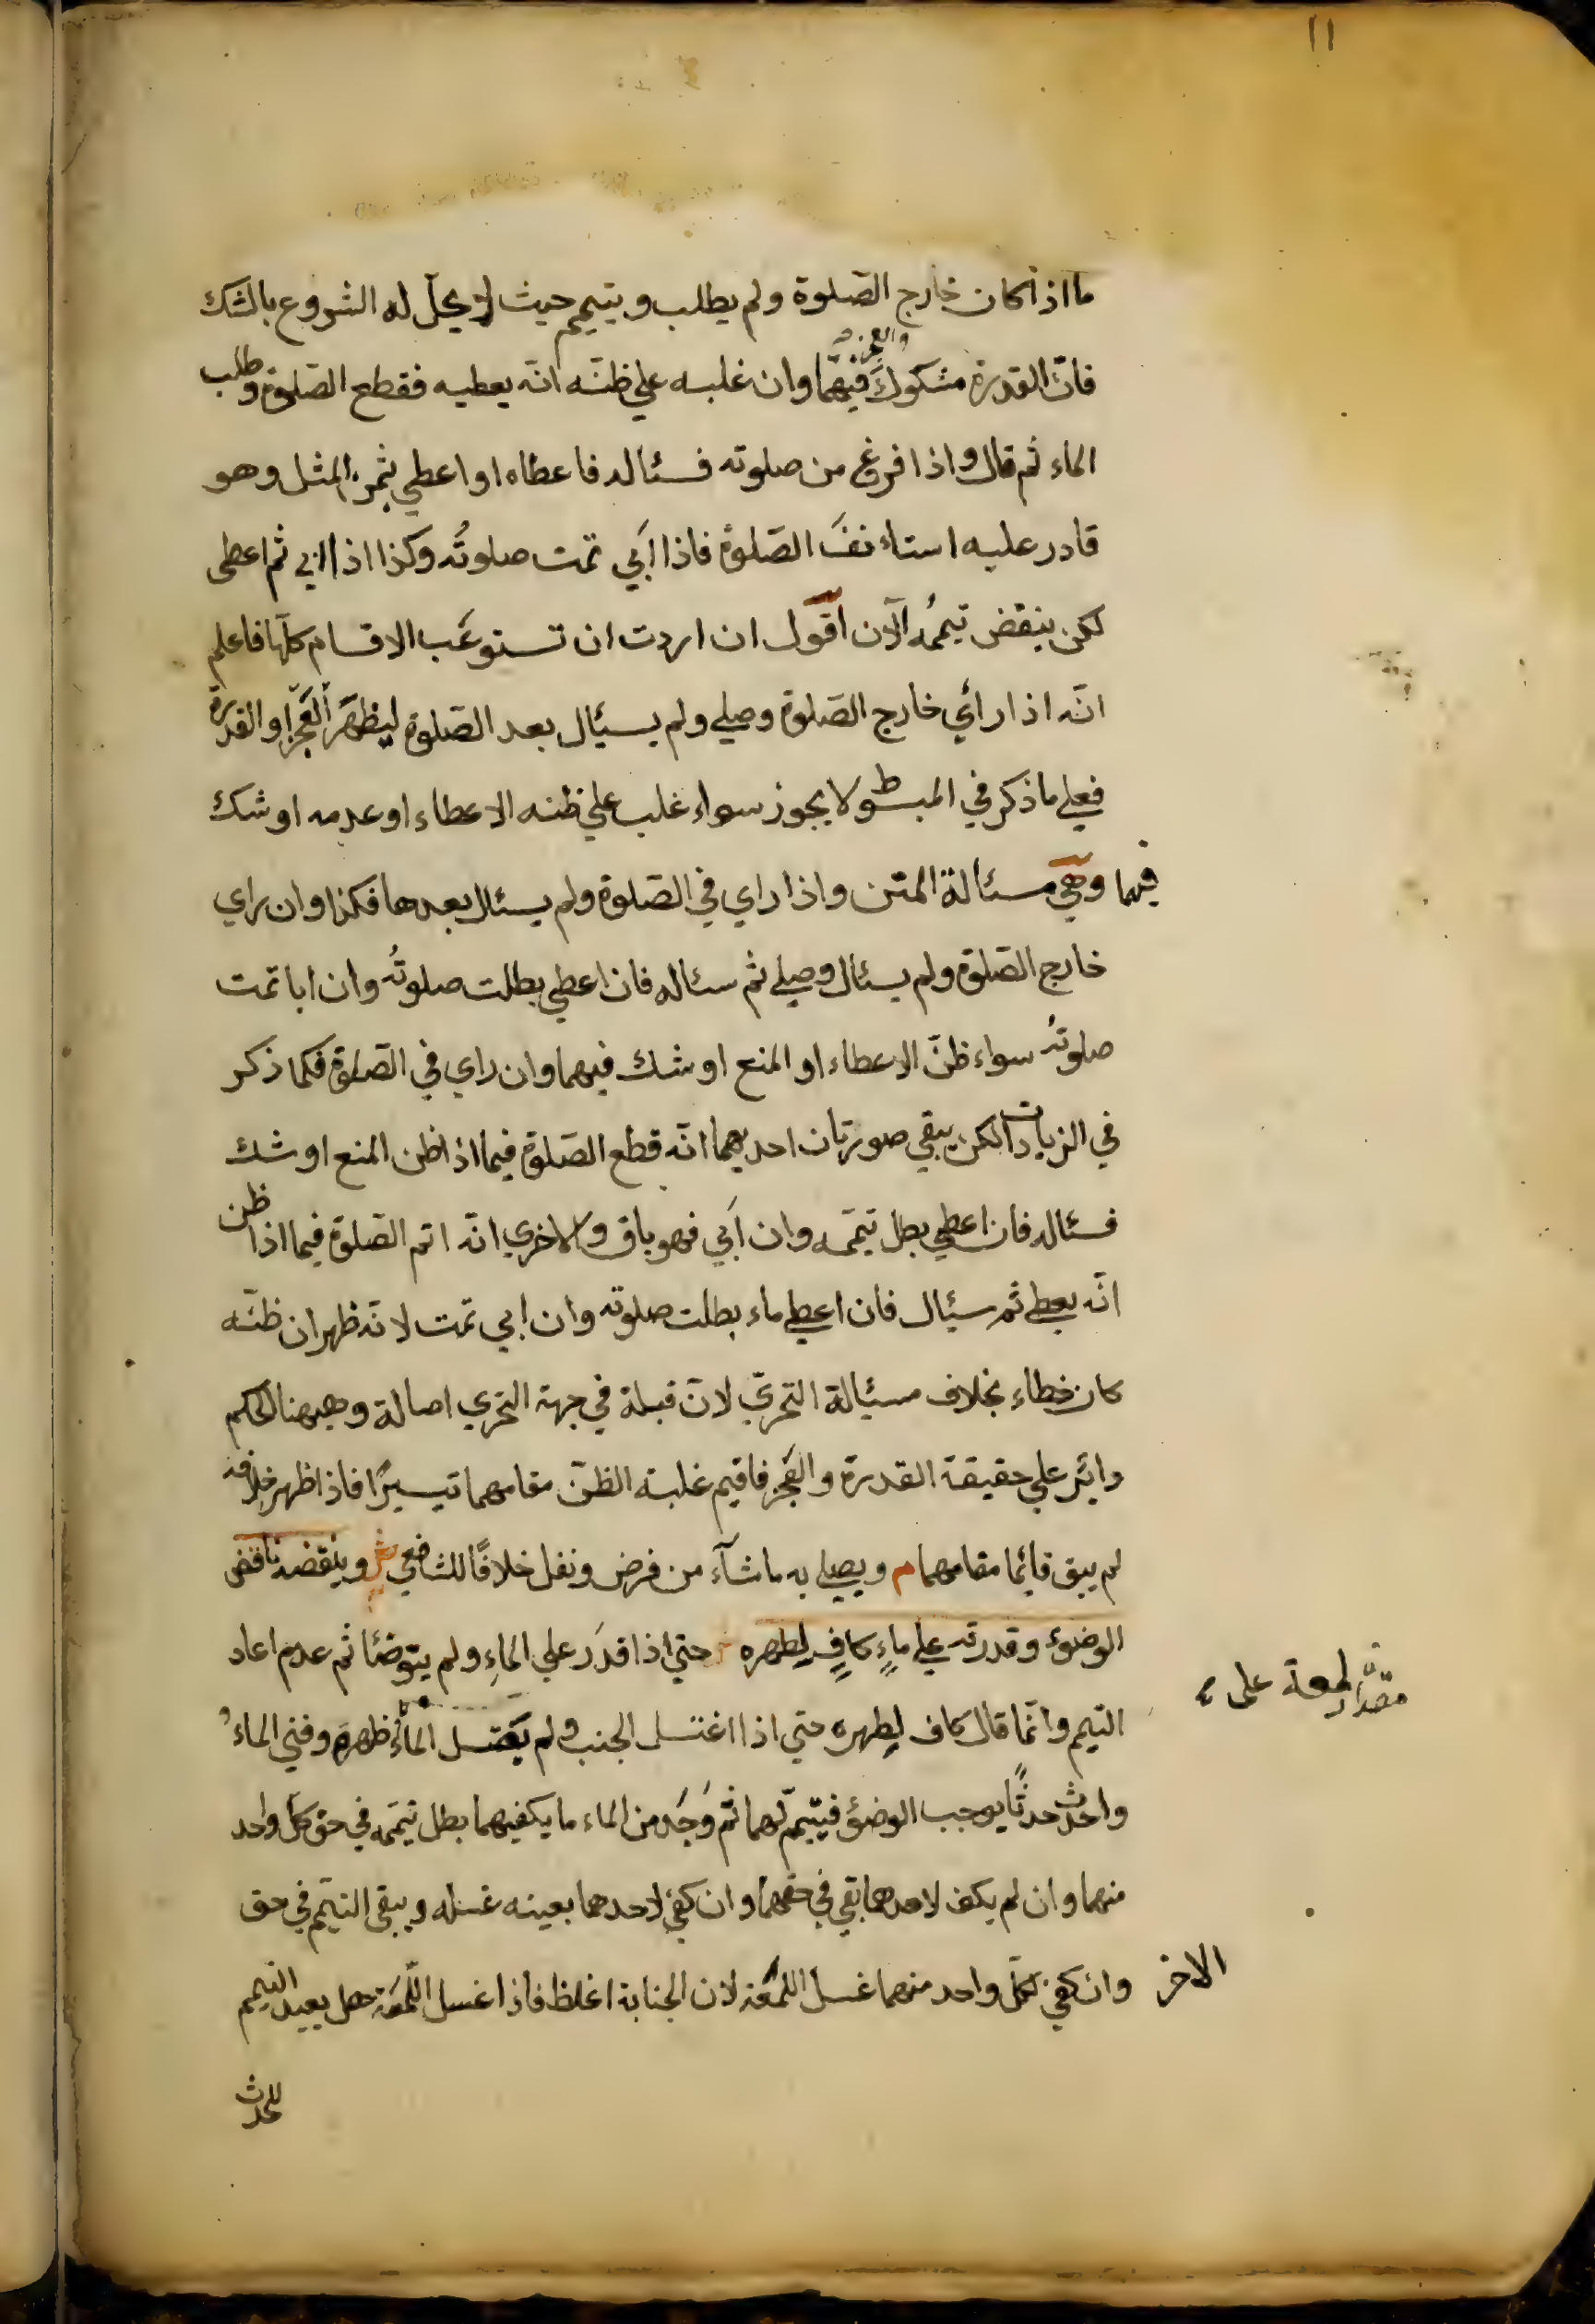 ١١
ما اذا كان خارج الصّلوة ولم يطلب ويتيمم حيث لا يحلّ له الشروع بالشك
والعجز
فانّ القدرة مشكوكَ فيهما وان غلبه علي ظنّه انّه يعطيه فقطع الصّلوة وطلب
الماء ثم قال واذا فرغ من صلوته فسئاله فاعطاه او اعطي بثمن المثل وهو
قادر عليه استاءنفَ الصّلوة فاذا اَبي تمت صلوتُه وكذا اذا ابي ثم اعطى
لكن ينقض تيممُه الآن اقول ان اردت ان تستوعَب الاقسام كلّها فاعلم
انّه اذا رأي خارج الصّلوة وصلي ولم يسئال بعد الصّلوة ليظهَر العَجز او القدرة
فعلي ما ذكر في المبسوط لا يجوز سواء غلب علي ظنه الاعطاء او عدمه او شك
فيهما وهي مسئالة المتن واذا راي في الصّلوة ولم يسئال بعدها فكذا وان راي
خارج الصّلوة ولم يسئال وصلي ثم سئاله فان اعطي بطلت صلوتُه وان ابا تمت
صلوتُه سواء ظنّ الاعطاء او المنع او شك فيهما وان راي في الصّلوة فكما ذكر
في الزيادات لكن يبقي صورتان احديهما انّه قطع الصّلوة فيما اذا ظن المنع او شك
فسئاله فان اعطي بطل تيمّمه وان اَبي فهو باق والاخري انّه اتم الصّلوة فيما اذا ظن
انّه يعطي ثم سئال فان اعطي ماء بطلت صلوته وان ابي تمت لانّه ظهر ان ظنّه
كان خطاء بخلاف مسئالة التحرّي لانّ قبلة في جهة التحري اصالة وههنا الحكم
دائر علي حقيقة القدرة والعَجز فاقيم غلبة الظنّ مقامهما تيسيرًا فاذا ظهر خلافه
لم يبق قائما مقامهما م ويصلي به ما شآء من فرض ونفل خلافًا للشافعي ش وينقضه ناقض
الوضوء وقدرته علي ماءٍ كافٍ لِطهره ش حتي اذا قدَر علي الماءِ ولم يتوضّا ثم عدم اعاد
التيمم وانّما قال كاف لِطهره حتي اذا اغتسل الجنب ولم يَصل الماءُ ظهره وفني الماءُ
مقدار لمعة على
واحدث حدثًا يوجب الوضؤ فتيمّم لهما ثمّ وَجَد من الماء ما يكفيهما بطل تيمّمه في حق كلّ واحد
منهما وان لم يكف لاحدهما بقي في حقهما وان كفي لاحدهما بعينه غسله ويبقى التيمّم في حق
الاخر وان كفي لكلّ واحد منهما غسل اللمعَة لان الجنابة اغلظ فاذا غسل اللّمعَة هل يعيد التيمم
للحدث